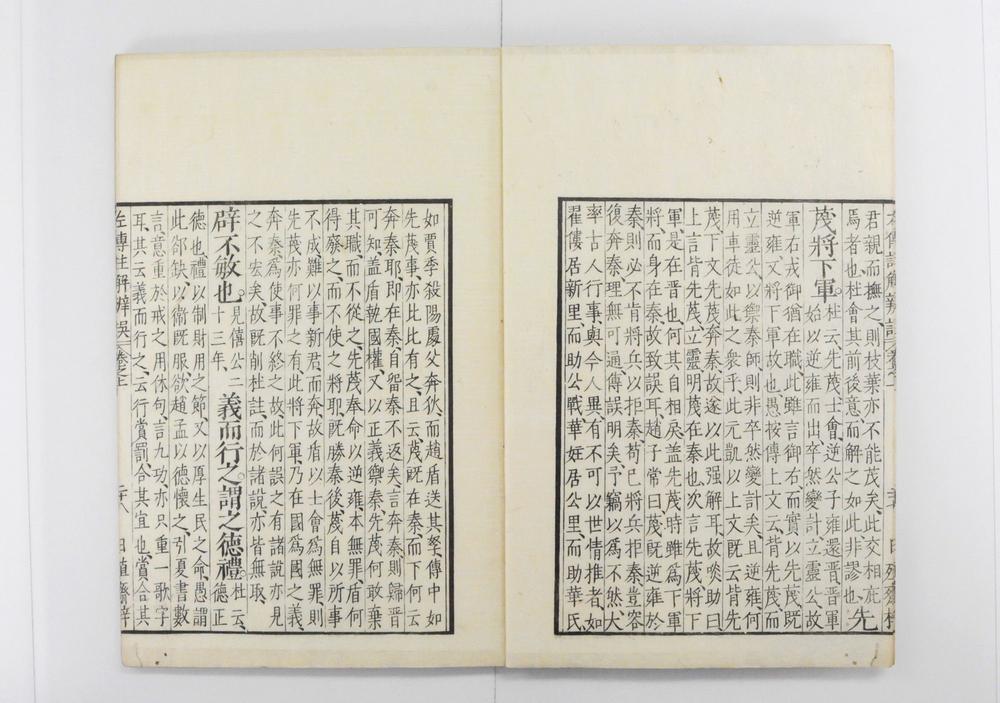 君親而撫之、則枝葉亦不能茂矣、此交相庇
焉者也、杜會其前後意、而解之如此、非謬也、先
蔑將下軍。杜云、先蔑士會、逆公子雍還晉、晉軍
始以逆雍而出、卒然變計、立靈公、故
軍右戎御猶在職、此雖言御右、而實以先蔑既
逆雍、又將下軍故也、愚按傳上文云、背先蔑、而
立靈公、以禦秦師、則非卒然變計矣、且逆雍、何
用車徒如此之衆乎、此元凱以上文既云背先
蔑、下文先蔑奔秦、故遂以此强解耳、故啖助曰、
上言背先蔑、立靈明蔑在秦也、次言先蔑將下
軍、是在晉也、何其自相戾、盖先蔑時雖爲下軍
將、而身在秦、故致誤耳、趙子常曰、蔑既逆雍於
秦、則必不肯將兵以拒秦、苟已將兵拒秦、豈容
復奔秦、理無可通、傳誤明矣、予竊以為不然、大
率古人行事、與今人異、有不可以世情推者、如
翟僂居新里、而助公戰、華妵居公里、而助華氏、
如賈季殺陽處父奔狄、而趙盾送其孥、傳中如
先蔑事、亦比比有之、且云、蔑既在秦、而下何云
奔秦耶、即在秦、自留秦不返矣、言奔秦、則歸晉
可知、盖盾執國權、又以正義禦秦、先蔑何敢棄
其職、而不從之、先蔑奉命以逆雍、本無罪、盾何
得廢之、而不使之將耶、既勝秦後、蔑自以所事
不成、難以事新君、而奔、故盾以士會爲無罪、則
先蔑亦何罪之有、此將下軍、乃在國爲國之義、
奔秦、爲使事不終之故、此何誤之有、諸說亦見
之不宏矣、故既削杜註、而於諸說、亦皆無取、
辟不敏也。見僖公二十三年、義而行之、謂之德禮。杜云、德正
德也、禮以制財用之節、又以厚生民之命、愚謂
此郤缺、以衞既服、欲趙孟以德懷之、引夏書數
言、意重於戒之用休句、言九功、亦只重一歌字
耳、其云義而行之、云行賞罰、合其宜也、賞合其
左傳註解辨誤 卷之上 二十八 日殖齋梓